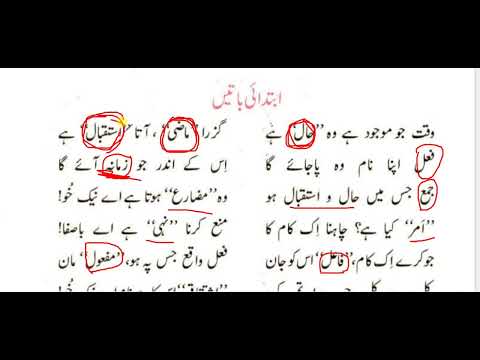 ابتدائی باتیں
وقت جو موجود ہے وہ ’’حال‘‘ ہے گزرا ’’ماضی‘‘، آتا ’’استقبال‘‘ ہے
فعل اپنا نام وہ پا جائے گا اِس کے اندر جو زمانہ آئے گا
جمع جس میں حال و استقبال ہو وہ ’’مضارع‘‘ ہوتا ہے اے نیک خُو!
’’اَمر‘‘ کیا ہے؟ چاہنا اِک کام کا منع کرنا ’’نہی‘‘ ہے اے باصفا!
جو کرے اِک کام، ’’فاعل‘‘ اس کو جان فعل واقع جس پہ ہو، ’’مفعول‘‘ مان